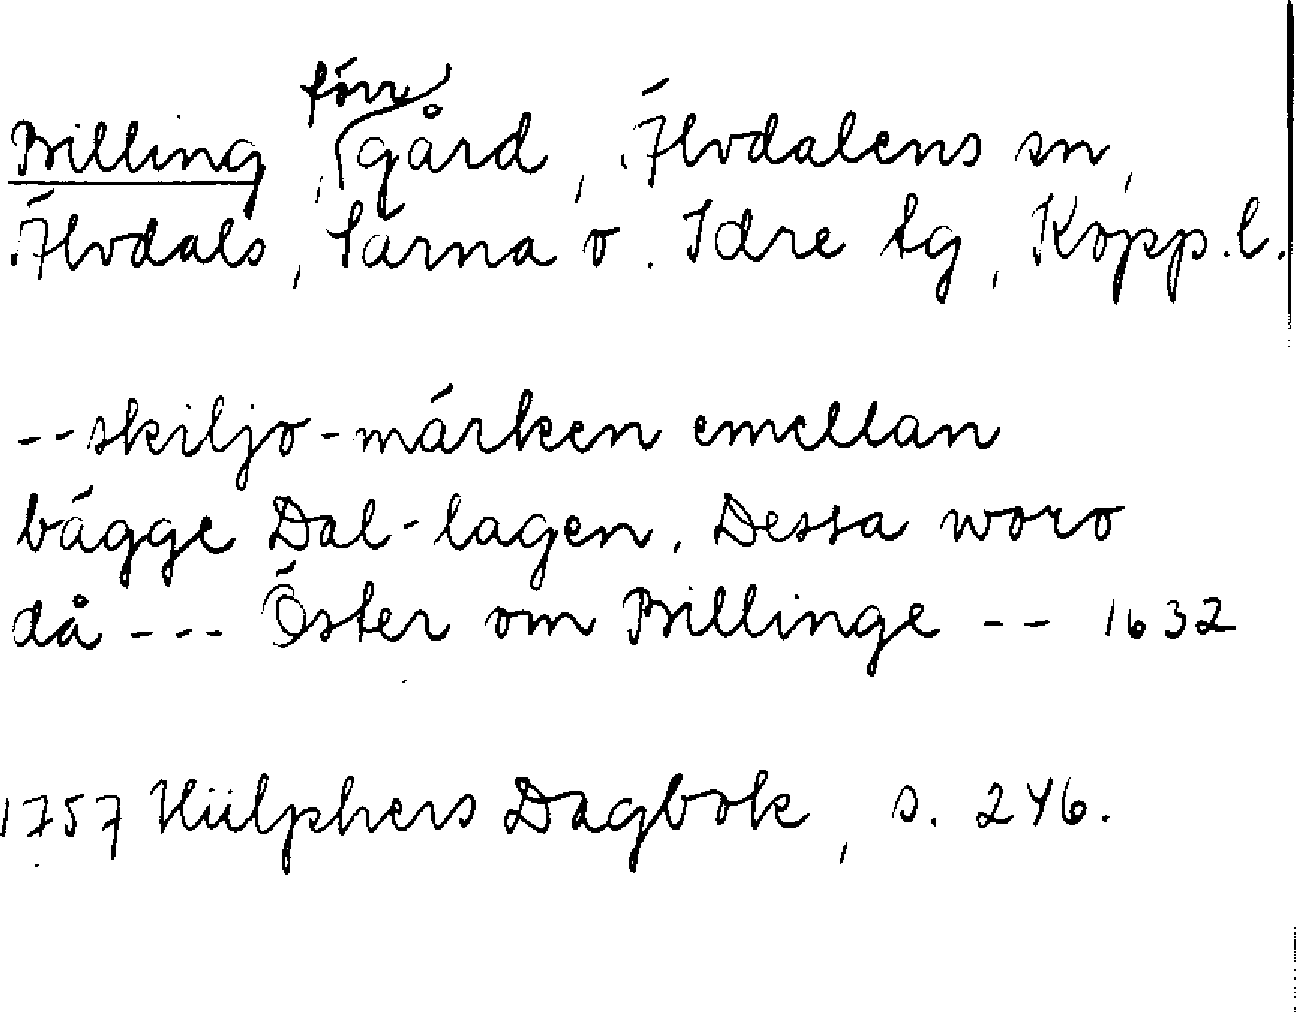 Billing, förr gård, Älvdalens sn,
Älvdals, Särna o. Idre tg, Kopp.l.
--skiljo-märken emellan
bägge Dal-lagen. Dessa woro
då --- Öster om Billinge -- 1632
1757 Hülphers Dagbok, s. 246.